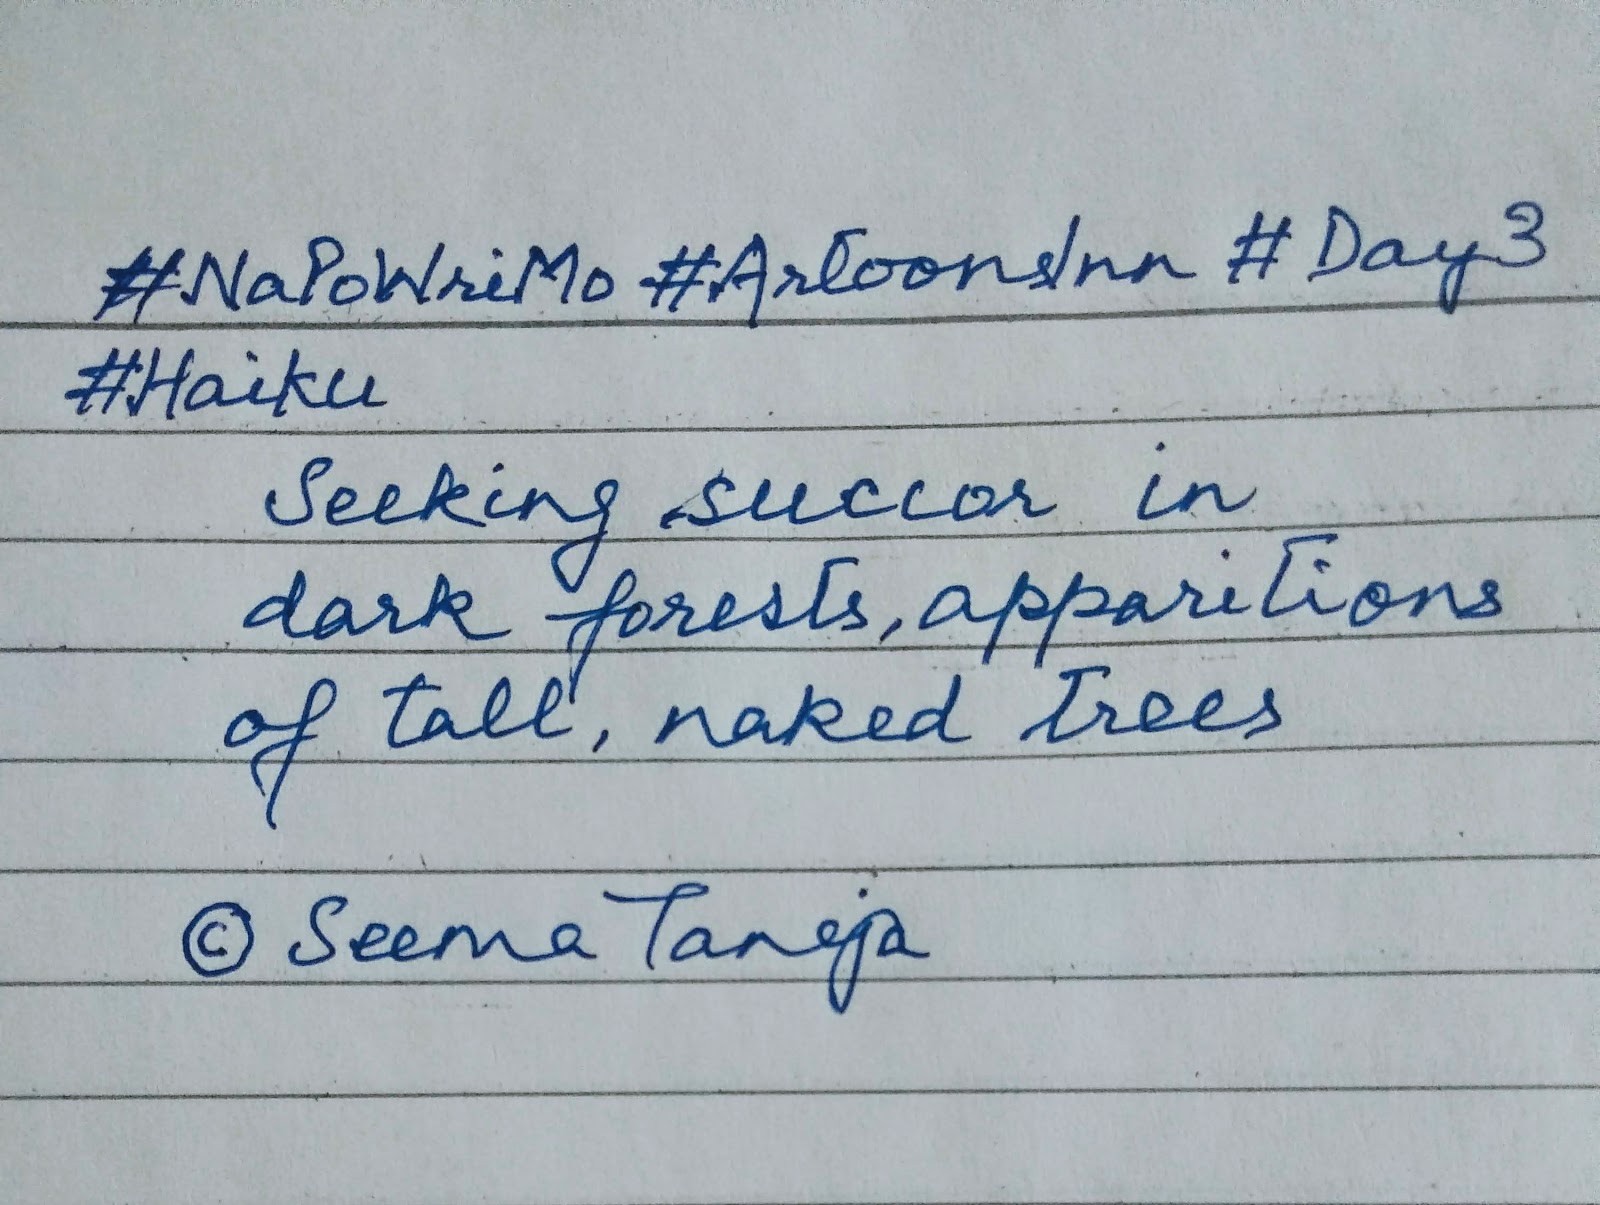 #NaPoWriMo #ArtoonsInn #Day3
#Haiku
Seeking succor in
dark forests, apparitions
of tall, naked trees
© Seema Taneja